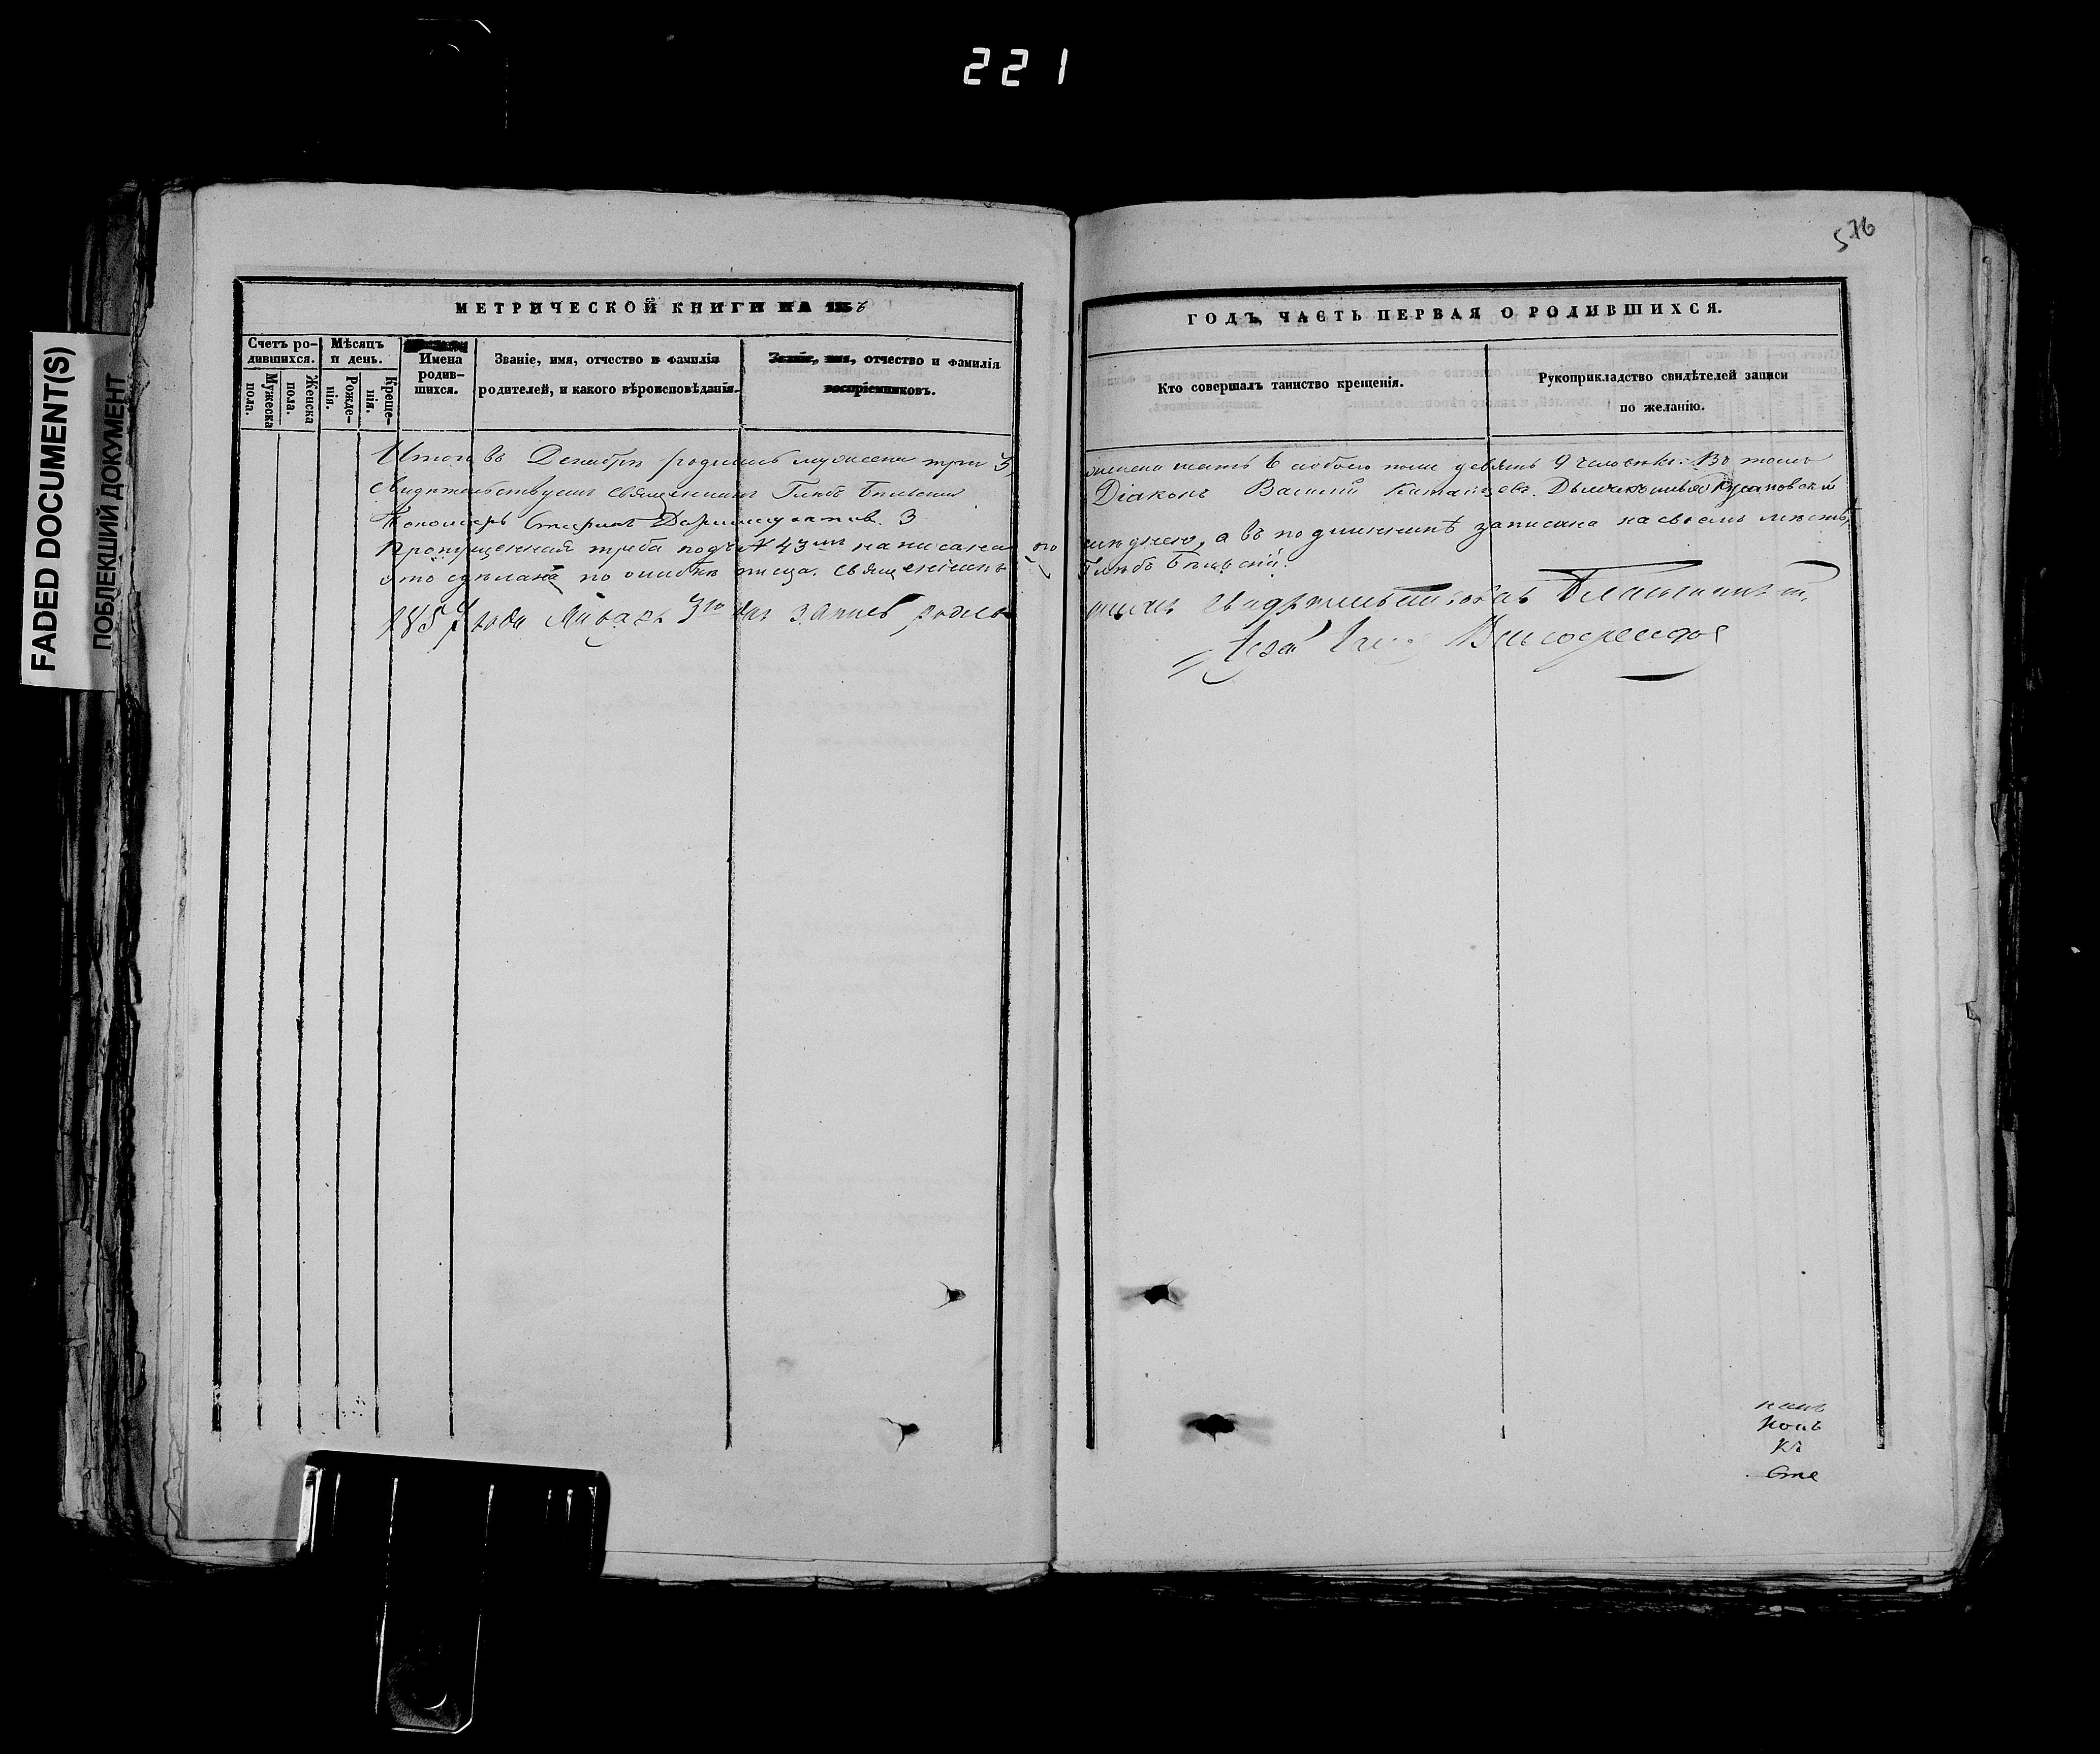 221
FADED DOCUMENT(S)
ПОБЛЕКШИЙ ДОКУМЕНТ
576
МЕТРИЧЕСКОЙ КНИГИ НА 1856
Счетъ ро-
дившихся.
Мужеска
пола.
Женска
пола.
Мѣсяцъ
и день.
Рожде-
нія.
Креще-
нія.
Имена
родив-
шихся.
Званіе, имя, отчество и фамилія
родителей, и какого вѣроисповѣданія.
Званіе, имя, отчество и фамилія
воспріемниковъ.
Итого въ Декабрѣ родилось мужеска три 3,
Свидѣтельствуемъ священникъ Глѣбъ Бѣльскій
Пономарь 3
Пропущенная треба подъ № 43мъ написана
это сдѣлано по ошибкѣ писца. Священникъ
1857 года Января 3го дня записъ родив
ГОДЪ, ЧАСТЬ ПЕРВАЯ О РОДИВШИХСЯ.
Кто совершалъ таинство крещенія.
Рукоприкладство свидѣтелей записи
по желанію.
женска шесть 6 обоего пола девять 9 человѣкъ. Въ томъ
Діаконъ Василій
а въ подлинникѣ записана на своемъ мѣстѣ,
Глѣбъ Бѣльскій.
шихся свидѣтельствовалъ Благочинный,
Высо
Сте